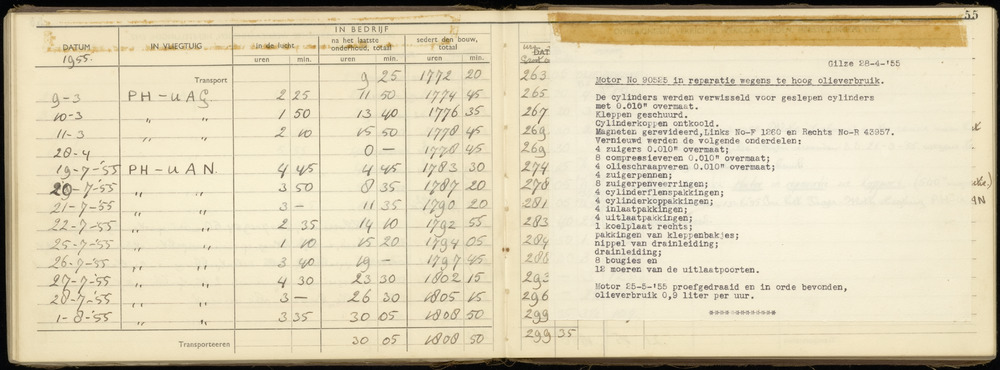 DATUM IN VLIEGTUIG IN BEDRIJF
In de lucht na het laatste onderhoud, totaal sedert den bouw, totaal
1955. uren min. uren min. uren min.
Transport 9 25 1772 20
9-3 PH-UAG 2 25 11 50 1774 45
10-3 „ „ 1 50 13 40 1776 35
11-3 „ „ 2 10 15 50 1778 45
28-4 0 — 1778 45
19-7-'55 PH-UAN. 4 45 4 45 1783 30
20-7-'55 „ „ 3 50 8 35 1787 20
21-7-'55 „ „ 3 — 11 35 1790 20
22-7-'55 „ „ 2 35 14 10 1792 55
25-7-'55 „ „ 1 10 15 20 1794 05
26-7-'55 „ „ 3 40 19 — 1797 45
27-7-'55 „ „ 4 30 23 30 1802 15
28-7-'55 „ „ 3 — 26 30 1805 15
1-8-'55 „ „ 3 35 30 05 1808 50
Transporteeren 30 05 1808 50
55
DAT
263
265
267
269
269
274
278
281
283
284
288
293
296
299
299 35
Gilze 28-4-'55
Motor No 90525 in reparatie wegens te hoog olieverbruik.
De cylinders werden verwisseld voor geslepen cylinders
met 0.010" overmaat.
Kleppen geschuurd.
Cylinderkoppen ontkoold.
Magneten gerevideerd,Links No-F 1260 en Rechts No-R 43957.
Vernieuwd werden de volgende onderdelen;
4 zuigers 0.010" overmaat;
8 compressieveren 0.010" overmaat;
4 olieschraapveren 0.010" overmaat;
4 zuigerpennen;
8 zuigerpenveerringen;
4 cylinderflenspakkingen;
4 cylinderkoppakkingen;
4 inlaatpakkingen;
4 uitlaatpakkingen;
1 koelplaat rechts;
pakkingen van kleppenbakjes;
nippel van drainleiding;
drainleiding;
8 bougies en
12 moeren van de uitlaatpoorten.
Motor 25-5-'55 proefgedraaid en in orde bevonden,
olieverbruik 0,9 liter per uur.